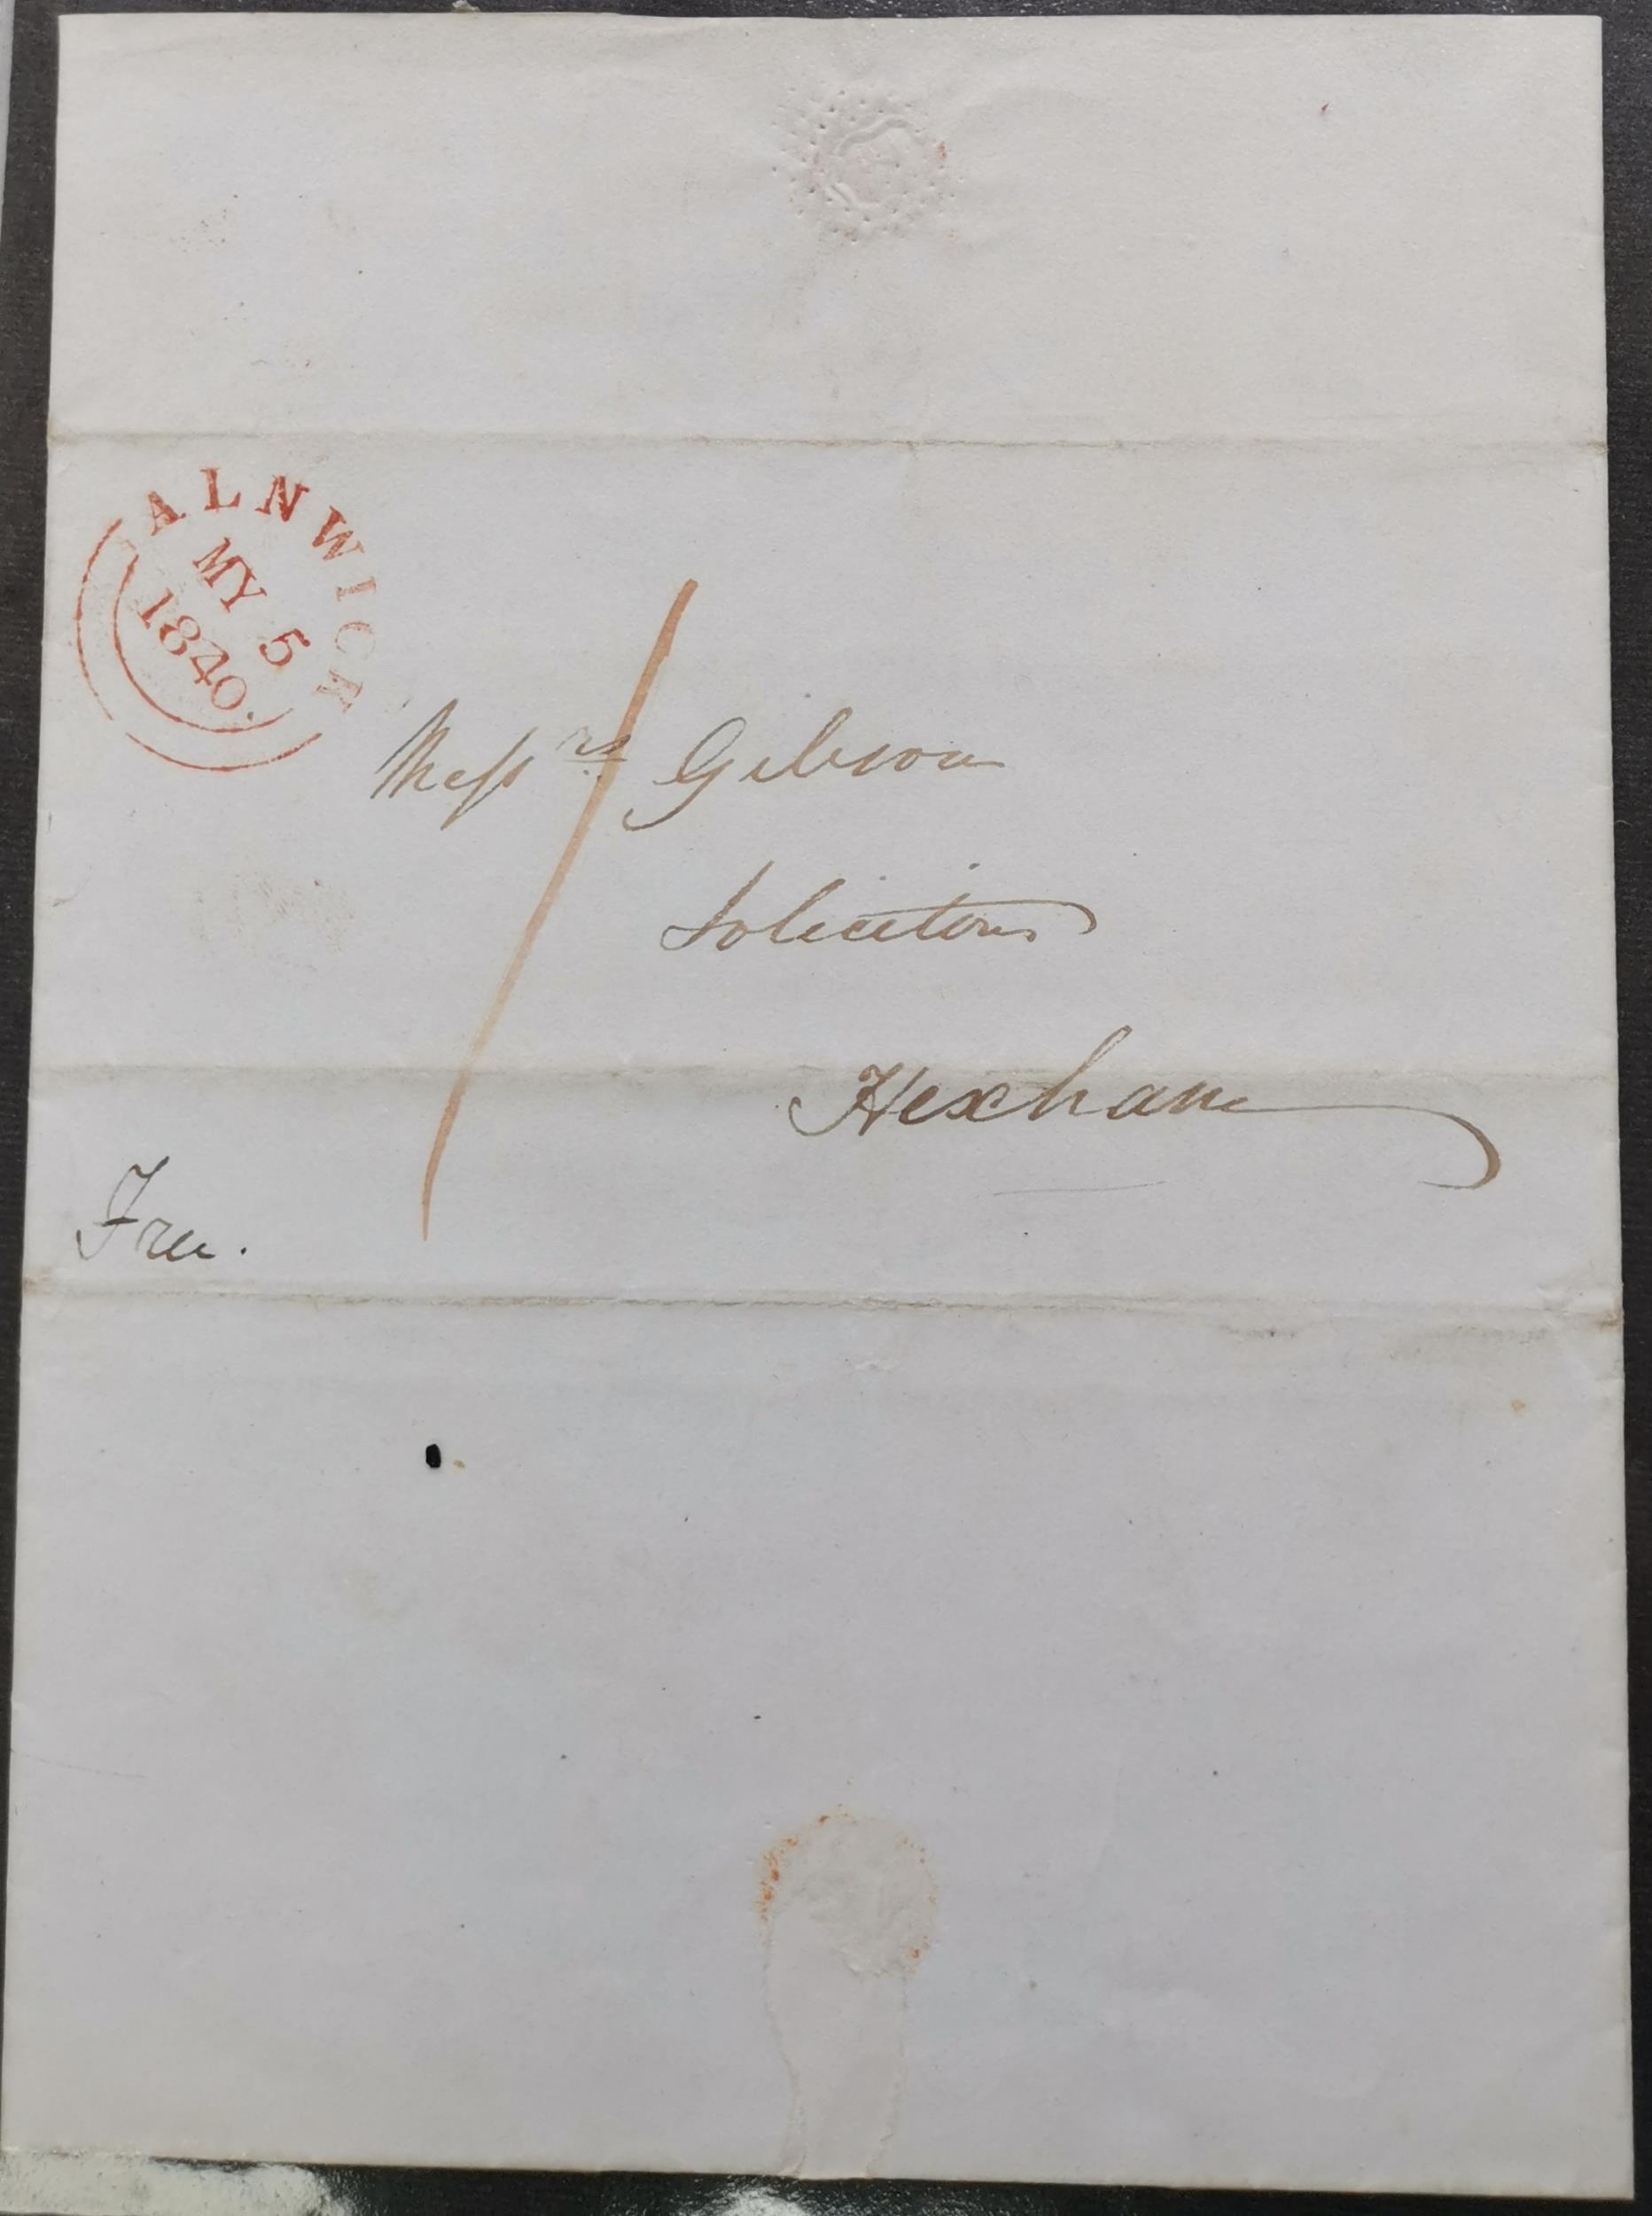 ALNWICK
MY 5
1840
/
Messrs Gibson
Solicitors
Hexham
Free.